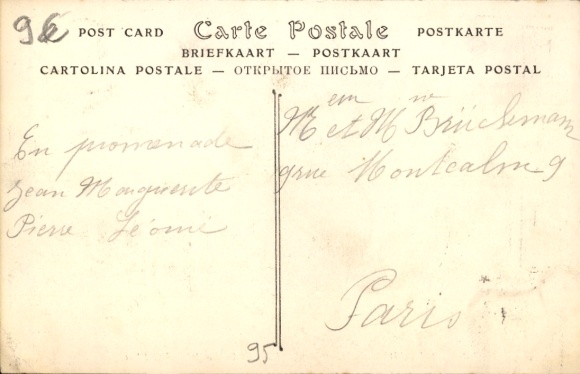 96
POST CARD Carte Postale POSTKARTE
BRIEFKAART — POSTKAART
CARTOLINA POSTALE — ОТКРЫТОЕ ПИСЬМО — TARJETA POSTAL
En promenade
Jean Marguerite
Pierre Léonie
Mem et Mr Brückmann
9 rue Montcalm 9
Paris
95